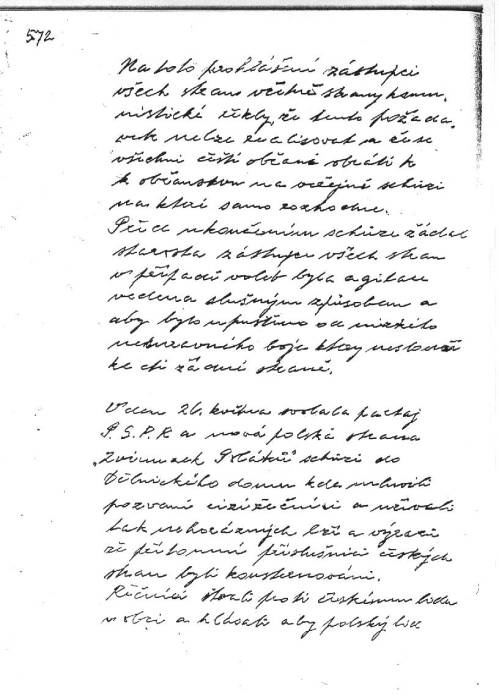 572
Na toto prohlášení zástupci
všech stran včetně strany komu-
nistické řekly, že tento požada-
vek nelze realisovat a že se
všichni čeští občané obrátí k
k občanstvu na veřejné schůzi
na které samo rozhodne.
Před ukončením schůze žádal
starosta zástupce všech stran
v případě voleb byla agitace
vedena slušným způsobem a
aby bylo upuštěno od nízkého
nekulturního boje který neslouží
ke cti žádné straně.
V den 26. května svolala partaj
P.S.P.R a nová polská strana
„Zwionzek Poláků" schůzi do
Dělnického domu kde mluvili
pozvaní cizí řečníci a užívali
tak nehorázných lží a výrazů
že přítomní příslušníci českých
stran byli konsternováni.
Řečníci štvali proti českému lidu
v obci a hlásali aby polský lid